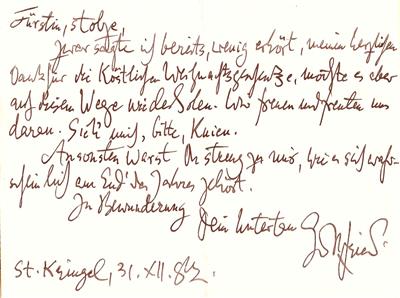 Fürstin, stolze,
zwar sagte ich bereits, wenig erhört, meinen herzlichen
Dank für die köstlichen Weihnachtsgeschenke, möchte es aber
auf diesem Wege wiederholen. Wir freuen und freuten uns
daran. Sieh' mich, bitte, knien.
Ansonsten warst Du streng zu mir, wie es sich wahr-
scheinlich am End' des Jahres gehört.
In Bewunderung
Dein hintersten
St. Kringel, 31. XII. 82.